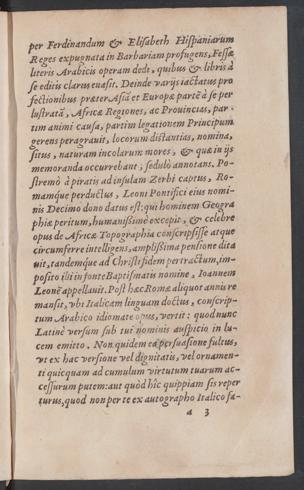 per Ferdinandum & Elisabeth Hispaniarum
Reges expugnata in Barbariam profugens, Fessæ
literis Arabicis operam dedit, quibus & libris à
se editis clarus euasit. Deinde varijs iactatus pro
fectionibus præter Asiæ et Europæ partē à se per
lustratā, Africæ Regiones, ac Prouincias, par-
tim animi causa, partim legationem Principum
gerens peragrauit, locorum distantias, nomina,
situs, naturam incolarum mores, & quæ in ijs
memoranda occurrebant, sedulò annotans. Po-
stremò à piratis ad insulam Zerbi captus, Ro-
mamque perductus, Leoni Pontifici eius nomi-
nis Decimo dono datus est: qui hominem Geogra
phiæ peritum, humanissimè excepit, & celebre
opus de Africæ Topographia conscripsisse atque
circumferre intelligens, amplissima pensione dita
uit, tandemque ad Christi fidem pertractum, im-
posito illi in fonte Baptismatis nomine, Ioannem
Leonē appellauit. Post hæc Romæ aliquot annis re
mansit, vbi Italicam linguam doctus, conscrip-
tum Arabico idiomate opus, vertit: quod nunc
Latinè versum sub tui nominis auspicio in lu-
cem emitto. Non quidem ea persuasione fultus,
vt ex hac versione vel dignitatis, vel ornamen-
ti quicquam ad cumulum virtutum tuarum ac-
cessurum putem: aut quòd hîc quippiam sis reper
turus, quod non per te ex autographo Italico fa-
a 3